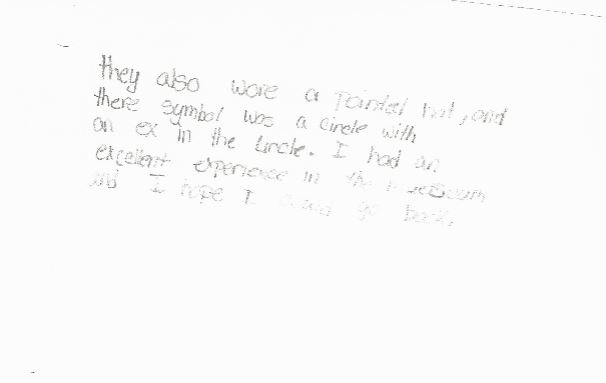 they also wore a pointed hat, and
there symbol was a circle with
an ex in the circle. I had an
excellent experience in the
and I hope I could go back.